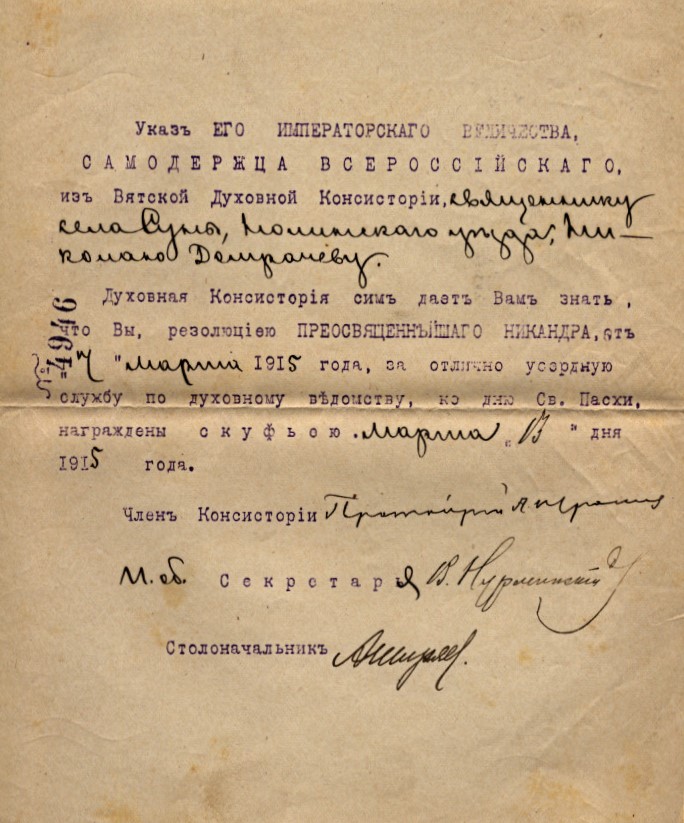 Указъ ЕГО ИМПЕРАТОРСКАГО ВЕЛИЧЕСТВА,
САМОДЕРЖЦА ВСЕРОССІЙСКАГО,
изъ Вятской Духовной Консисторіи, священнику
села Суны, Нолинскаго уѣзда, Ни-
колаю Домрачеву.
Духовная Консисторія симъ даетъ Вамъ знать,
что Вы, резолюціею ПРЕОСВЯЩЕННѢЙШАГО НИКАНДРА, отъ
"7" марта 1915 года, за отлично усердную
службу по духовному вѣдомству, ко дню Св. Пасхи,
награждены скуфьею. Марта „13" дня
1915 года.
№ 4946
Членъ Консисторіи Протоіерей А.
И. об. Секретаря В. Нурминскій
Столоначальникъ